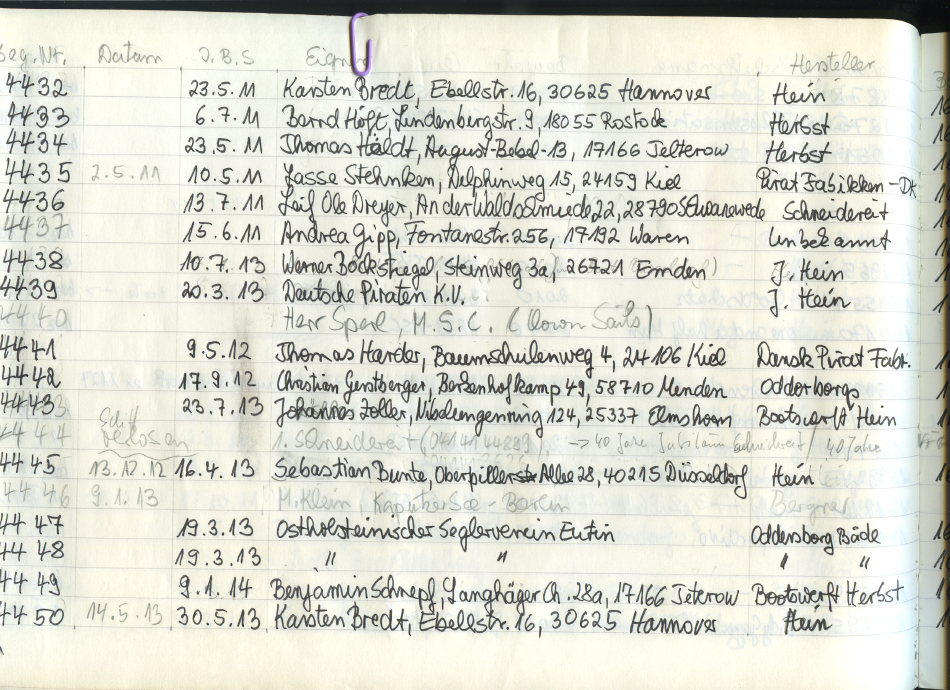 Seg.Nr. Datum D.B.S Eigner Hersteller
4432 23.5.11 Karsten Bredt, Ebellstr. 16, 30625 Hannover Hein
4433 6.7.11 Bernd Höft, Lindenbergstr. 9, 18055 Rostock Herbst
4434 23.5.11 Thomas Haldt, August-Bebel-13, 17166 Teterow Herbst
4435 2.5.11 10.5.11 Lasse Stehnken, Delphinweg 15, 24159 Kiel Pirat Fabrikken-DK
4436 13.7.11 Leif Ole Dreyer, An der Waldschmiede 22, 28790 Schwanewede Schneidereit
4437 15.6.11 Andrea Gipp, Fontanestr. 256, 17192 Waren Unbekannt
4438 10.7.13 Werner Böckstiegel, Steinweg 3a, 26721 Emden) J. Hein
4439 20.3.13 Deutsche Piraten K.V. J. Hein
4440 Herr Sperl, M.S.C. (Clown Sails)
4441 9.5.12 Thomas Harder, Baumschulenweg 4, 24106 Kiel Dansk Pirat Fabr.
4442 17.9.12 Christian Gerstberger, Berkenhofkamp 49, 58710 Menden Odderborg
4443 23.7.13 Johannes Zoller, Nibelungenring 124, 25337 Elmshorn Bootswerft Hein
4444 1. Schneidereit (04141 44889) -> 40 Jahre Jubiläum Schneidereit / 40 Jahre
4445 13.12.12 16.4.13 Sebastian Bunte, Oberbilker Allee 28, 40215 Düsseldorf Hein
4446 9.1.13 M. Klein, Berlin Bergner
4447 19.3.13 Ostholsteinischer Seglerverein Eutin Oddersborg Både
4448 19.3.13 " " " "
4449 9.1.14 Benjamin Schnepf, Langhäger Ch. 28a, 17166 Teterow Bootswerft Herbst
4450 14.5.13 30.5.13 Karsten Bredt, Ebellstr. 16, 30625 Hannover Hein